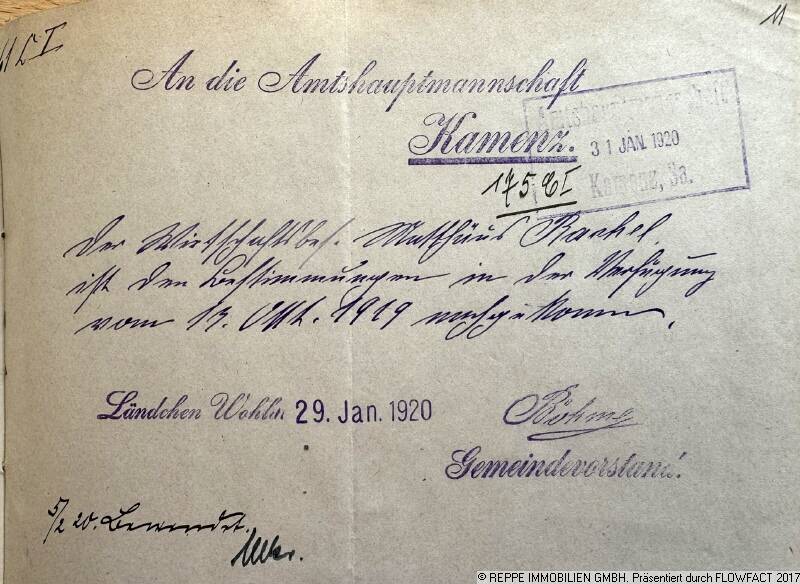 11
An die Amtshauptmannschaft
Kamenz.
Amtshauptmannschaft
31 JAN. 1920
Kamenz, Sa.
175 E I
Der Wirtschaftsbes. Matthäus Rackel
ist den Bestimmungen in der Verfügung
vom 13. Okt. 1919 nachgekommen.
Ländchen Wohla 29. Jan. 1920
Böhme
Gemeindevorstand.
5/2 20.
© REPPE IMMOBILIEN GMBH. Präsentiert durch FLOWFACT 2017